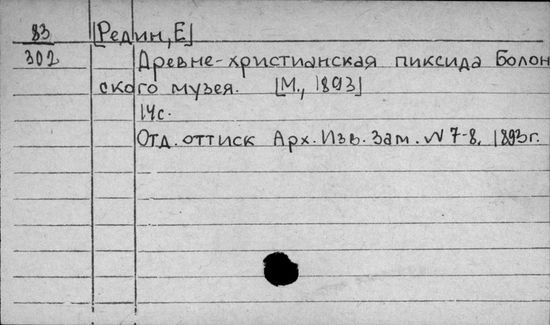 83 [Редин, Е]
302 Древне-христианская пиксида Болон
ского музея. [М., 1893]
14с.
Отд. оттиск Арх. Изв. Зам. N 7-8, 1893г.